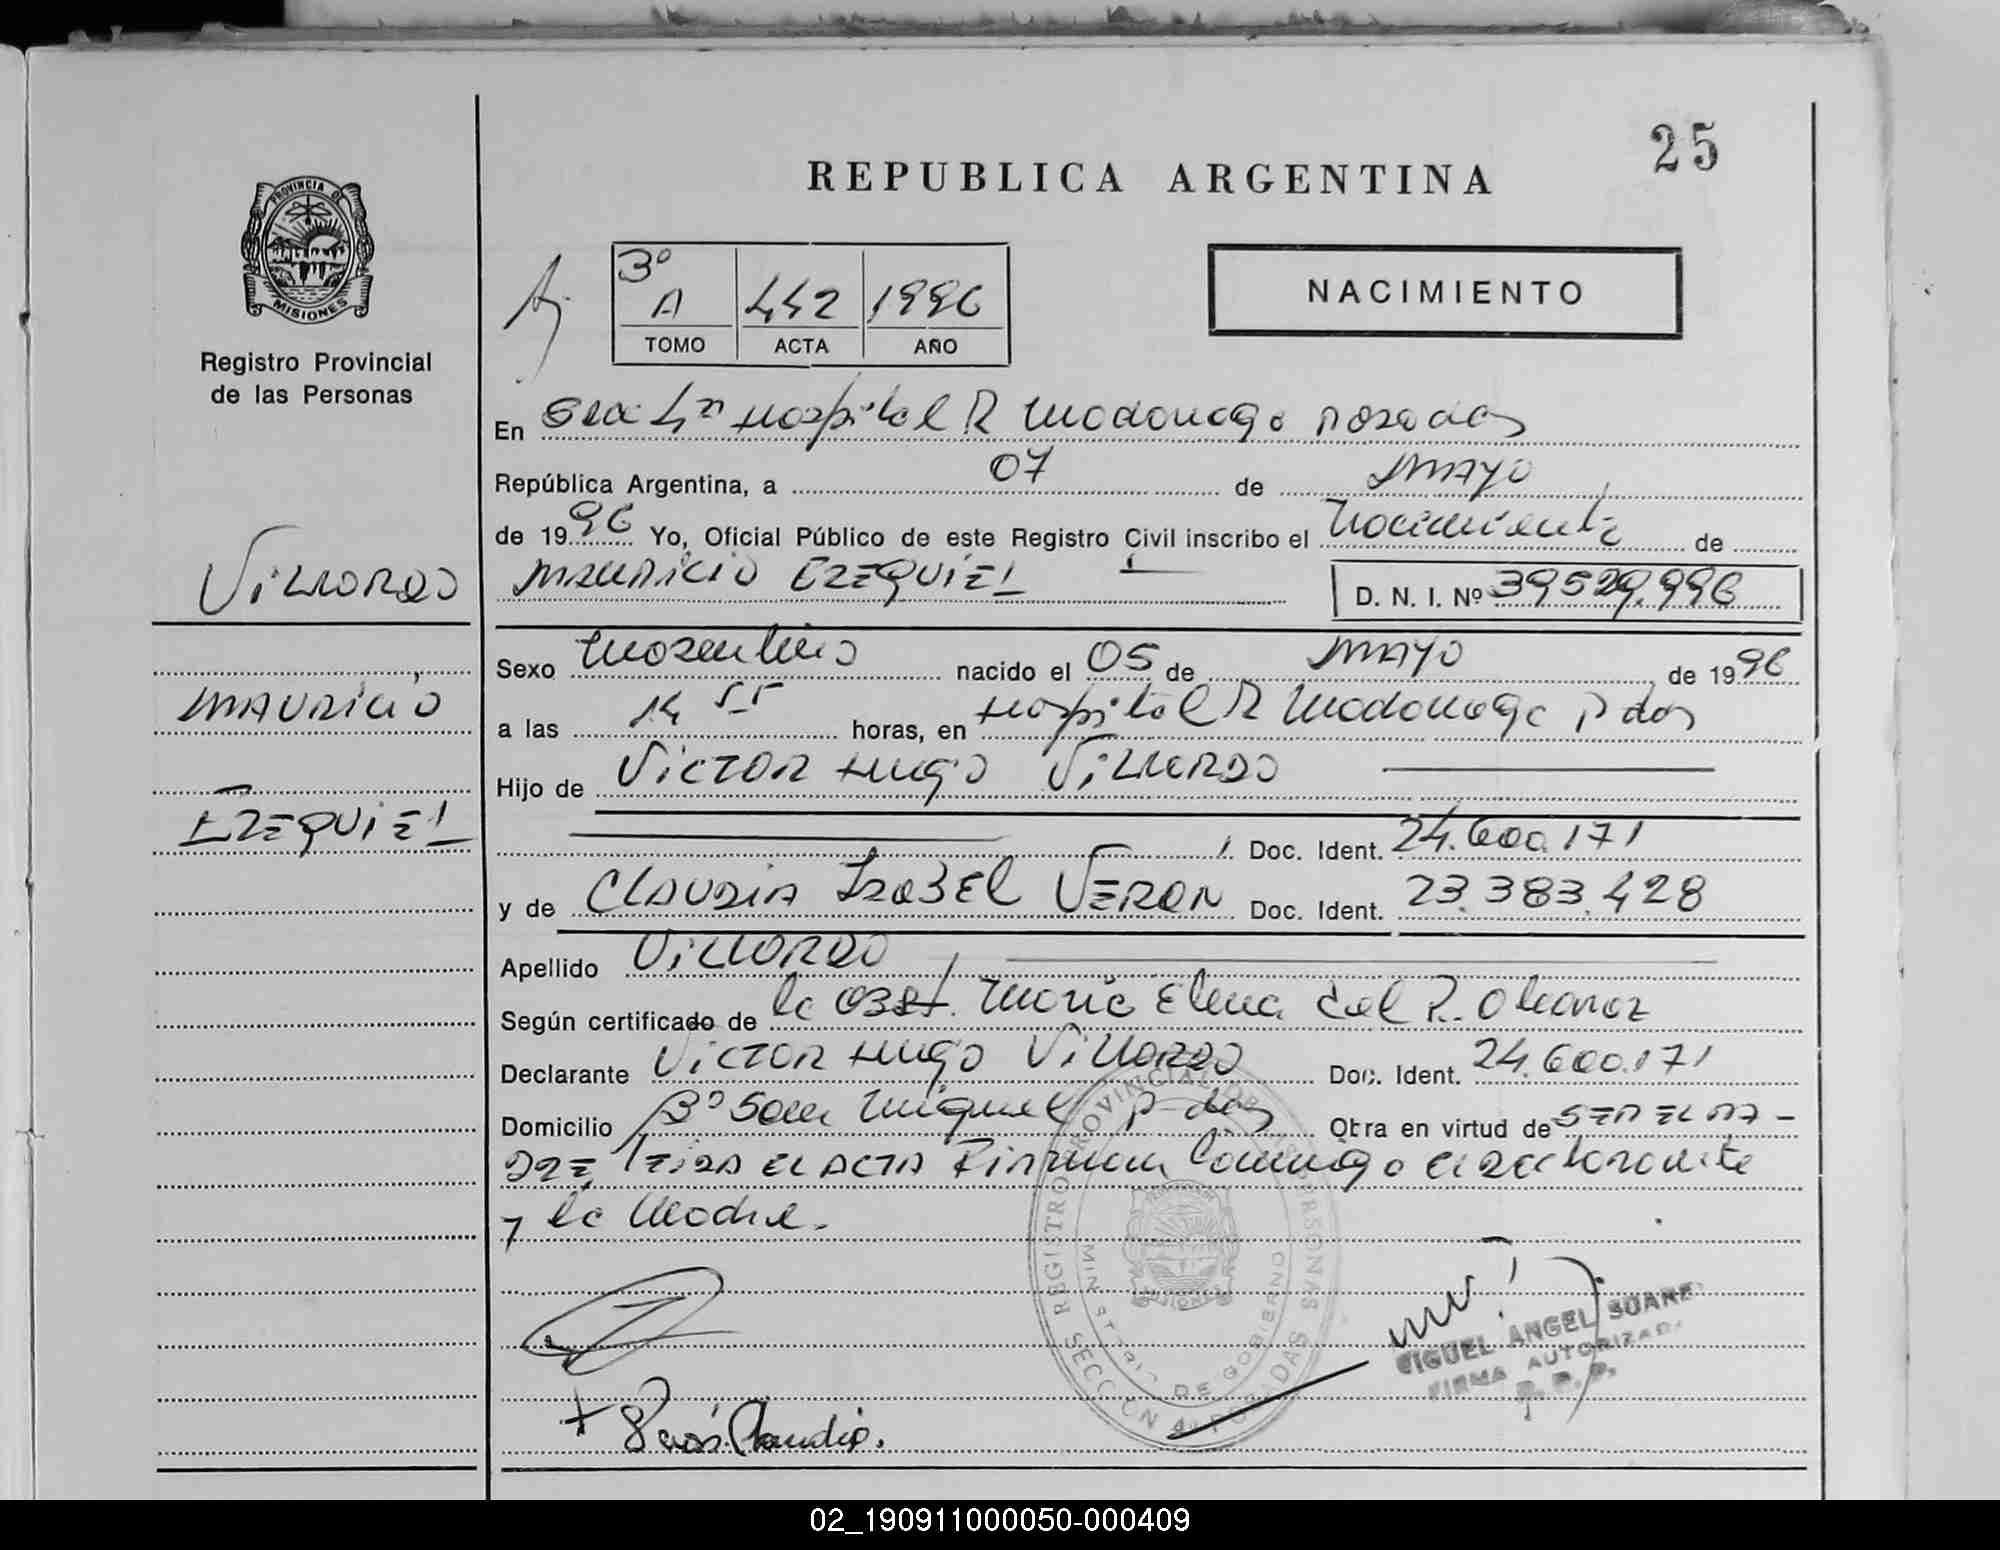 25
REPUBLICA ARGENTINA
PROVINCIA DE
MISIONES
Registro Provincial
de las Personas
3º
A 442 1996
TOMO ACTA AÑO
NACIMIENTO
En Secc 4ta Hospital R Madariaga Posadas
República Argentina, a 07 de MAYO
de 1996 Yo, Oficial Público de este Registro Civil inscribo el Nacimiento de
MAURICIO EZEQUIEL D. N. I. Nº 39529.996
Villordo
MAURICIO
EZEQUIEL
Sexo Masculino nacido el 05 de MAYO de 1996
a las 14 55 horas, en Hospital R Madariaga Pdas
Hijo de Victor Hugo Villordo
Doc. Ident. 24.600.171
y de CLAUDIA ISABEL VERON Doc. Ident. 23.383.428
Apellido Villordo
Según certificado de la Obst. Maria Elena del R.
Declarante Victor Hugo Villordo Doc. Ident. 24.600.171
Domicilio Bº San Miguel P-das Obra en virtud de SER EL PA-
DRE Leida el ACTA Firman Conmigo el declarante
y la Madre.
REGISTRO PROVINCIAL DE LAS PERSONAS
MINISTERIO DE GOBIERNO
SECCION 4ª POSADAS
MISIONES
MIGUEL ANGEL SUAREZ
FIRMA AUTORIZADA
R. P. P.
Claudia.
02_190911000050-000409